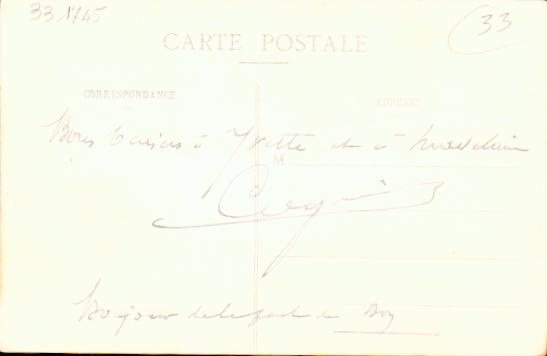 33 1745
33
CARTE POSTALE
CORRESPONDANCE
ADRESSE
Bons baisers à Yvette et à
M
Bonjour de la part de Boy